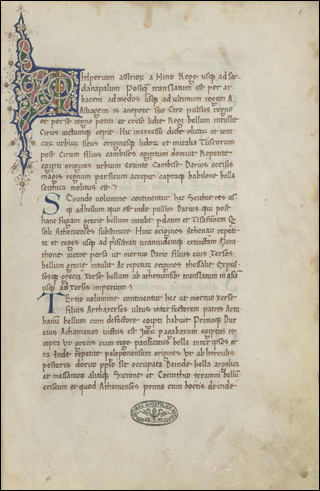 Imperium assirior a Nino Rege usq ad Sar
danapalum Postq translatum est per ar
bacem ad medos usq ad ultimum regem A
Astiagem is a nepote suo Ciro pulsus regno
et per se regno potiti et creso lidie Regi bellum intulit
Cirus victumq cepit Hic in excessu dicte eolicar et ioni
car urbiu situs originesq lidor et in italia Tuscorum
post Cirum filius cambises egiptum domuit Repetite
egipti origines urbium extincto Cambise Darius occisis
magis regnum persicum accepit captaq babilone bella
scithica molitus est
Secundo volumine continentur hec Scithie res us
q ad bellum quo est inde pulsus Darius qui post
hanc fugam grecie bellum intulit p datim et Tisafernem Q
soli Athenienses substinere Hinc origines athenar repeti
te et reges usq ad pisistrati tirannidemq extinctam Mara
thone vicere persas ut mortuo Dario filius eius Xerses
bellum grecie intulit Ac repetite origines thesalie Expul
susq grecia xerse bellum ab atheniensib translatum in asia
usq ad xersis imperium
Tertio volumine continentur hec ut mortuo xerse
filius Arthaxerses ultus interfectorem patris Arta
banum bellum cum defectore egipti habuit Primoq Dar
eius Achamenes victus est per bagabaxum egiptus re
cepta Ut grecis cum rege pacificatis bella inter ipsos or
ta Inde repetite peloponensium origines Ut ab herculis
posteris dorico pplo sit occupata Deinde bella argolica
et messaniaco alitiq Sicione et Corintho tiranni bellu
criseum et quod Athenienses primo cum boetis deinde